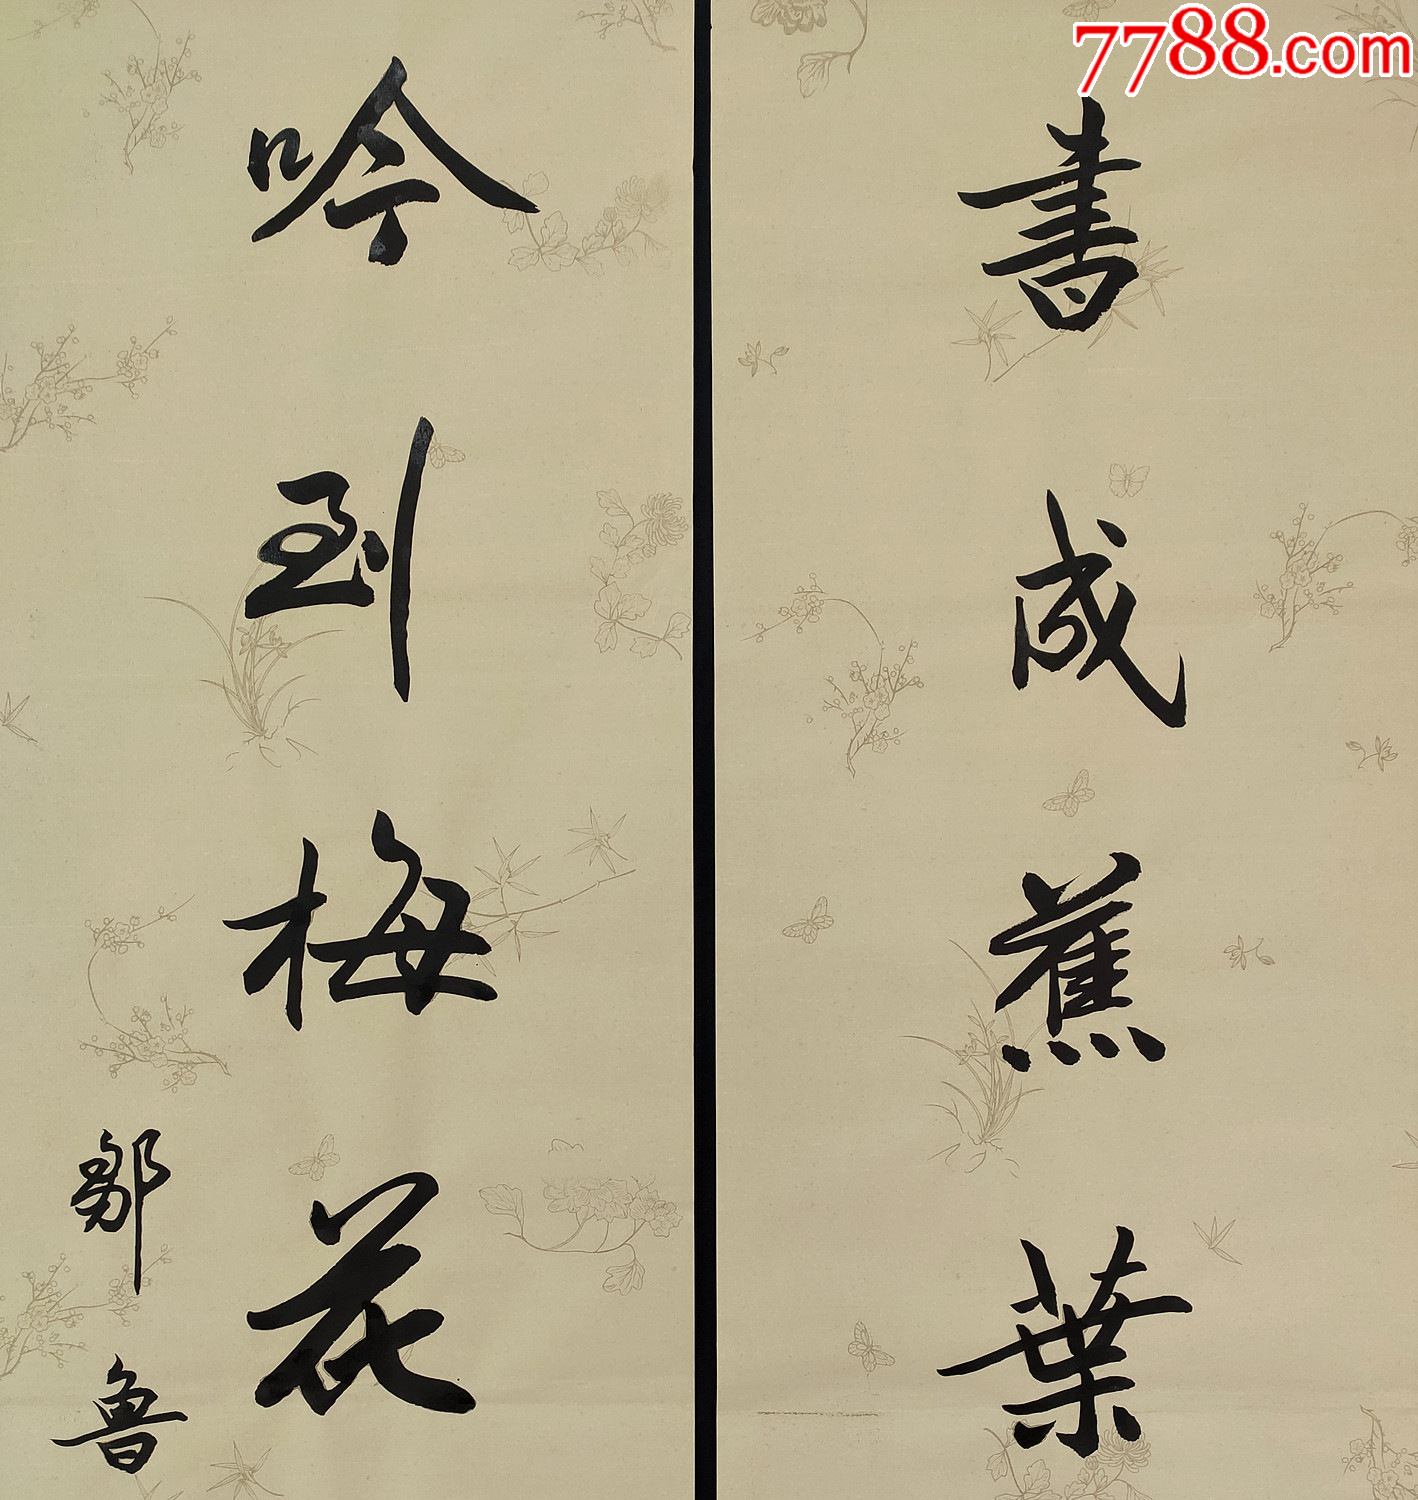 7788.com
書成蕉葉
吟到梅花
鄒魯